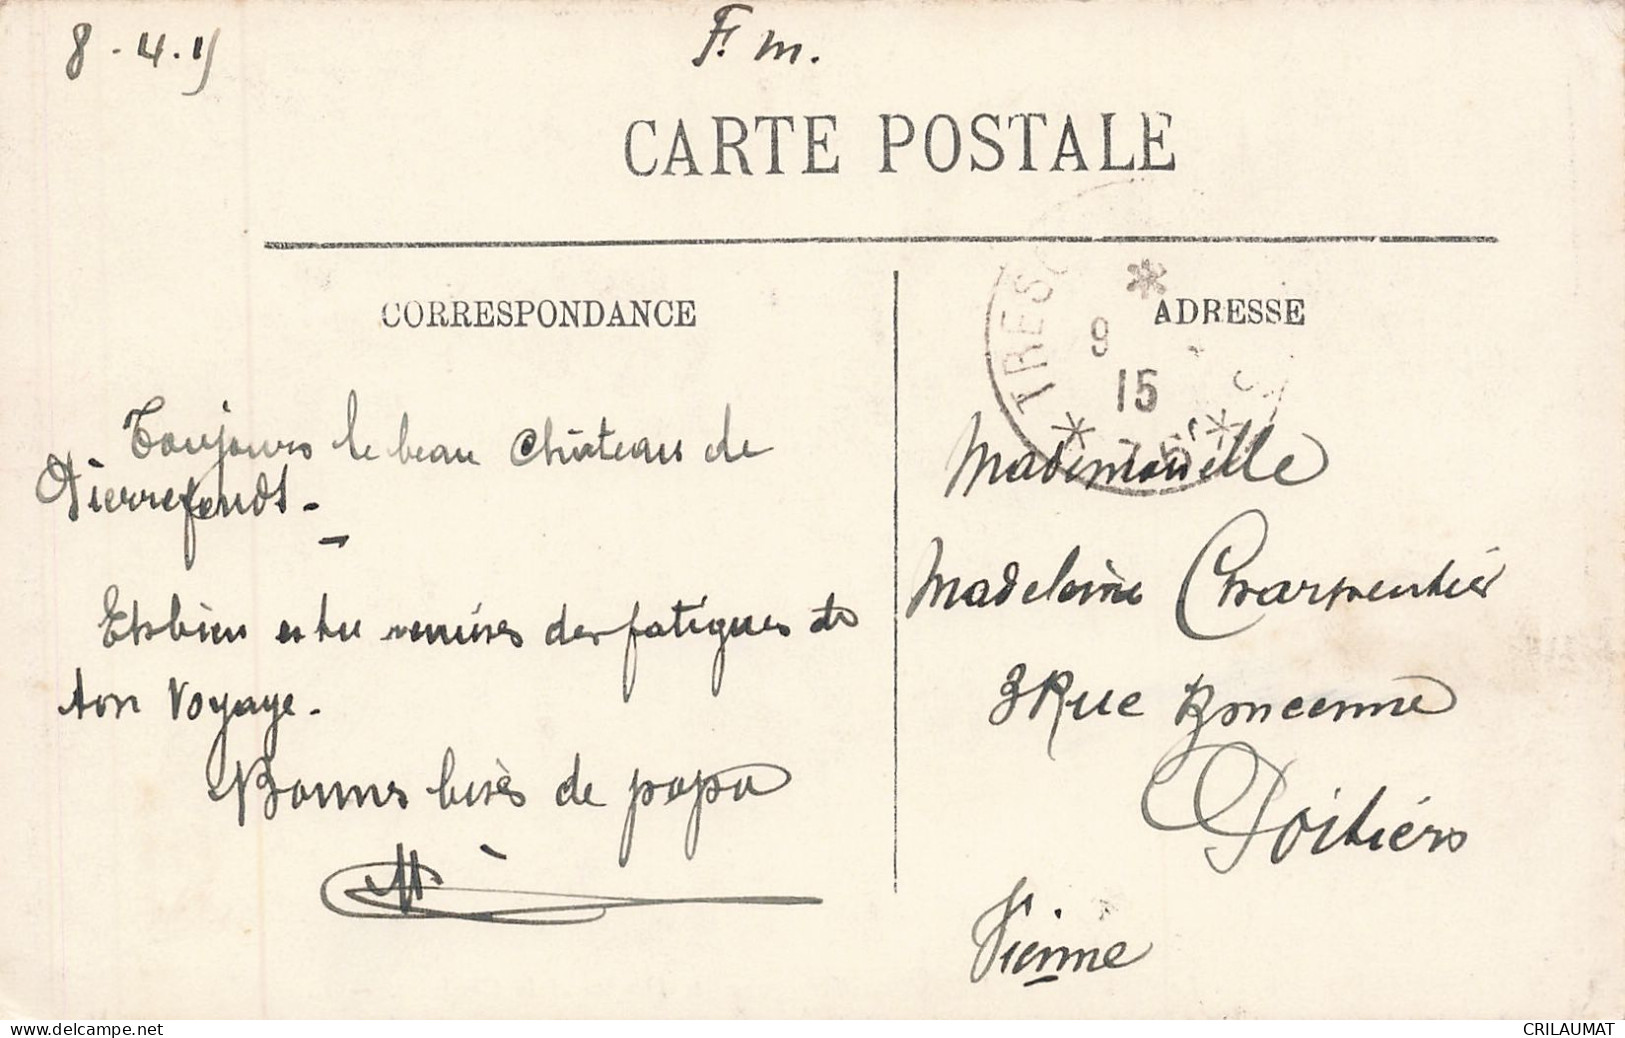 8-4-15
F. M.
CARTE POSTALE
CORRESPONDANCE
Toujours le beau Château de
Pierrefonds.-
Et bien es tu remises des fatigues de
ton voyage.
Bonnes bises de papa
TRES
9
15
ADRESSE
Mademoiselle
Madeleine Charpentier
3 Rue Boncenne
Poitiers
Vienne
www.delcampe.net
CRILAUMAT